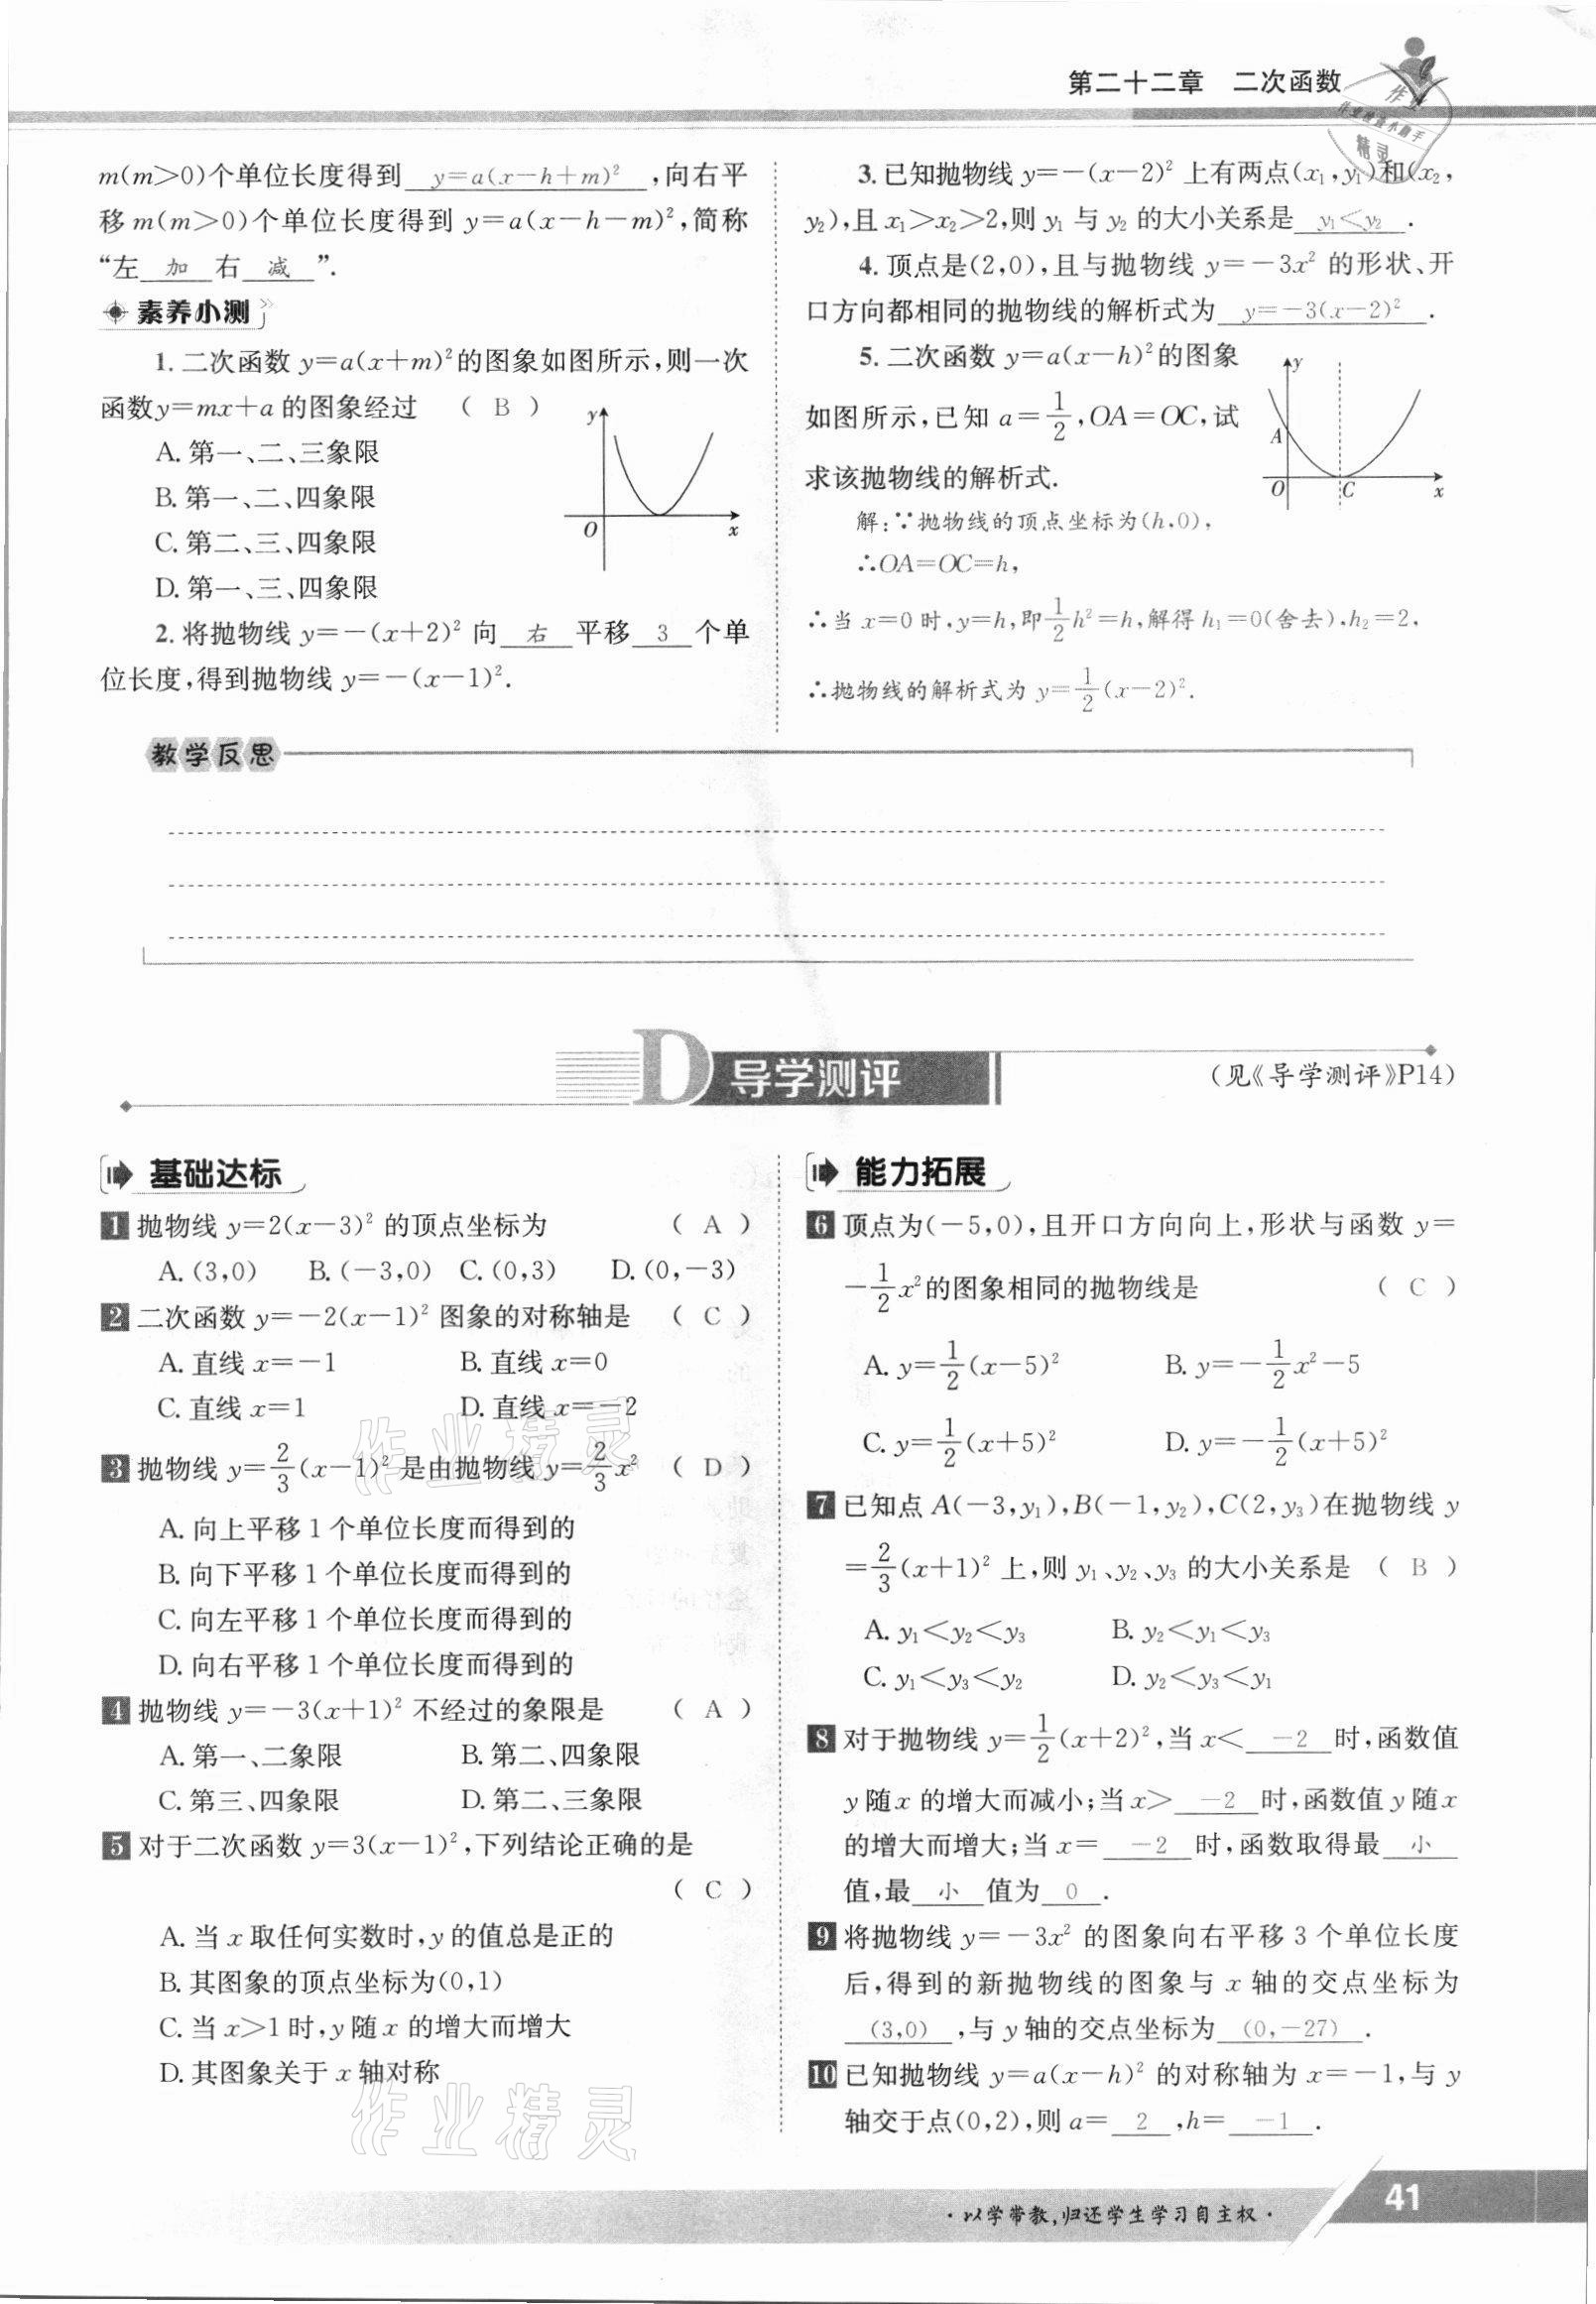 第二十二章　二次函数
m(m>0)个单位长度得到 y=a(x-h+m)² ,向右平
移 m(m>0)个单位长度得到 y=a(x-h-m)²,简称
“左 加 右 减 ”.
素养小测
1. 二次函数 y=a(x+m)²的图象如图所示,则一次
函数y=mx+a 的图象经过 ( B )
A. 第一、二、三象限
B. 第一、二、四象限
C. 第二、三、四象限
D. 第一、三、四象限
y
O
x
2. 将抛物线 y=-(x+2)² 向 右 平移 3 个单
位长度,得到抛物线 y=-(x-1)².
3. 已知抛物线 y=-(x-2)² 上有两点(x₁,y₁)和(x₂,
y₂),且 x₁>x₂>2,则 y₁ 与 y₂ 的大小关系是 y₁<y₂ .
4. 顶点是(2,0),且与抛物线 y=-3x² 的形状、开
口方向都相同的抛物线的解析式为 y=-3(x-2)² .
5. 二次函数 y=a(x-h)²的图象
如图所示,已知 a=1/2,OA=OC,试
求该抛物线的解析式.
y
A
O
C
x
解:∵抛物线的顶点坐标为(h,0),
∴OA=OC=h,
∴当 x=0 时,y=h,即1/2h²=h,解得 h₁=0(舍去),h₂=2,
∴抛物线的解析式为 y=1/2(x-2)².
教学反思
D 导学测评
(见《导学测评》P14)
基础达标
1 抛物线 y=2(x-3)² 的顶点坐标为 ( A )
A. (3,0) B. (-3,0) C. (0,3) D. (0,-3)
2 二次函数 y=-2(x-1)² 图象的对称轴是 ( C )
A. 直线 x=-1 B. 直线 x=0
C. 直线 x=1 D. 直线 x=-2
3 抛物线 y=2/3(x-1)² 是由抛物线 y=2/3x² ( D )
A. 向上平移 1 个单位长度而得到的
B. 向下平移 1 个单位长度而得到的
C. 向左平移 1 个单位长度而得到的
D. 向右平移 1 个单位长度而得到的
4 抛物线 y=-3(x+1)² 不经过的象限是 ( A )
A. 第一、二象限 B. 第二、四象限
C. 第三、四象限 D. 第二、三象限
5 对于二次函数 y=3(x-1)²,下列结论正确的是
( C )
A. 当 x 取任何实数时,y 的值总是正的
B. 其图象的顶点坐标为(0,1)
C. 当 x>1 时,y 随 x 的增大而增大
D. 其图象关于 x 轴对称
能力拓展
6 顶点为(-5,0),且开口方向向上,形状与函数 y=
-1/2x²的图象相同的抛物线是 ( C )
A. y=1/2(x-5)² B. y=-1/2x²-5
C. y=1/2(x+5)² D. y=-1/2(x+5)²
7 已知点 A(-3,y₁),B(-1,y₂),C(2,y₃)在抛物线 y
=2/3(x+1)² 上,则 y₁、y₂、y₃ 的大小关系是 ( B )
A. y₁<y₂<y₃ B. y₂<y₁<y₃
C. y₁<y₃<y₂ D. y₂<y₃<y₁
8 对于抛物线 y=1/2(x+2)²,当 x< -2 时,函数值
y 随 x 的增大而减小;当 x> -2 时,函数值 y 随 x
的增大而增大;当 x= -2 时,函数取得最 小
值,最 小 值为 0 .
9 将抛物线 y=-3x² 的图象向右平移 3 个单位长度
后,得到的新抛物线的图象与 x 轴的交点坐标为
(3,0) ,与 y 轴的交点坐标为 (0,-27) .
10 已知抛物线 y=a(x-h)² 的对称轴为 x=-1,与 y
轴交于点(0,2),则 a= 2 ,h= -1 .
作业精灵
作业精灵
·以学带教,归还学生学习自主权·
41